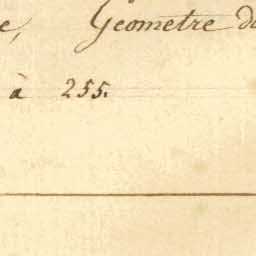 e, Géometre du
à 255.